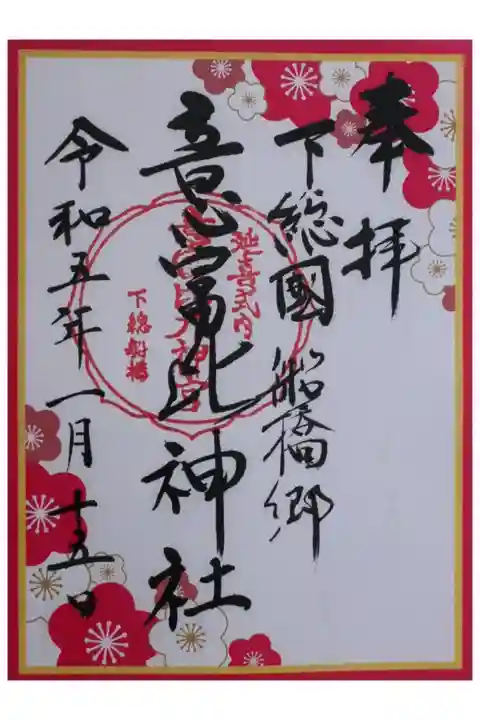 奉拝
下総國船橋郷
意富比神社
令和五年一月十五日
延喜式内
意富比神宮
下総船橋